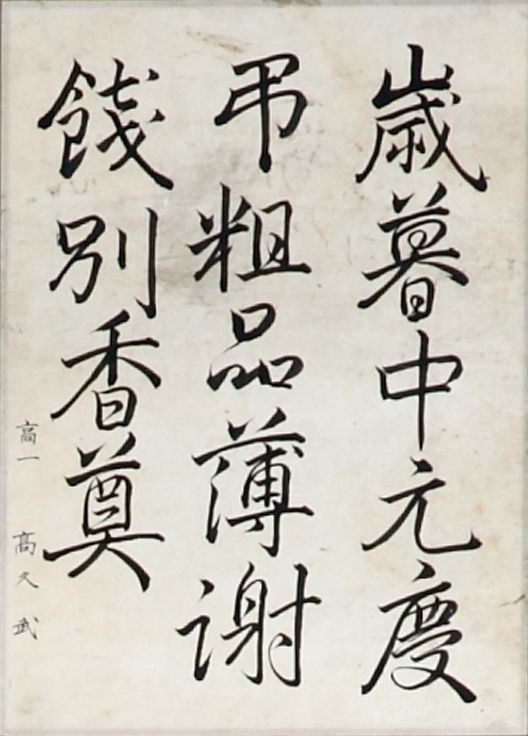 歳暮中元慶
弔粗品薄謝
餞別香奠
高一 高久武